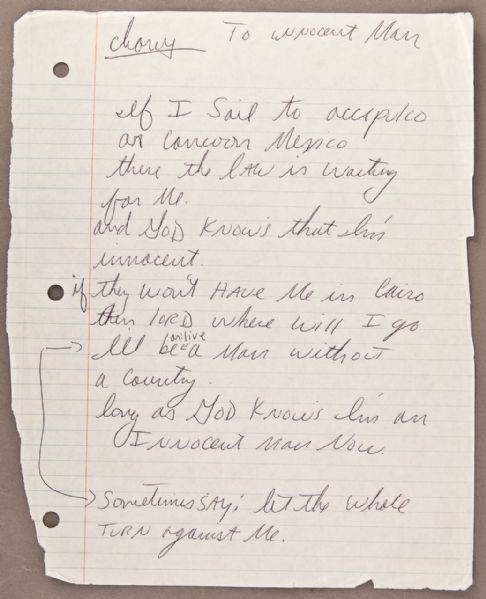 To innocent Man
If I Sail to accepulco
or Cancoon Mexico
there the law is waiting
for Me.
and GOD Knows that I'm
innocent.
if they won't HAVE Me in Cairo
then LORD where will I go
I'll be a Man without
a country.
long as GOD Knows I'm an
INNOCENT Man Now.
Sometimes SAY: let the whole
TURN against Me.